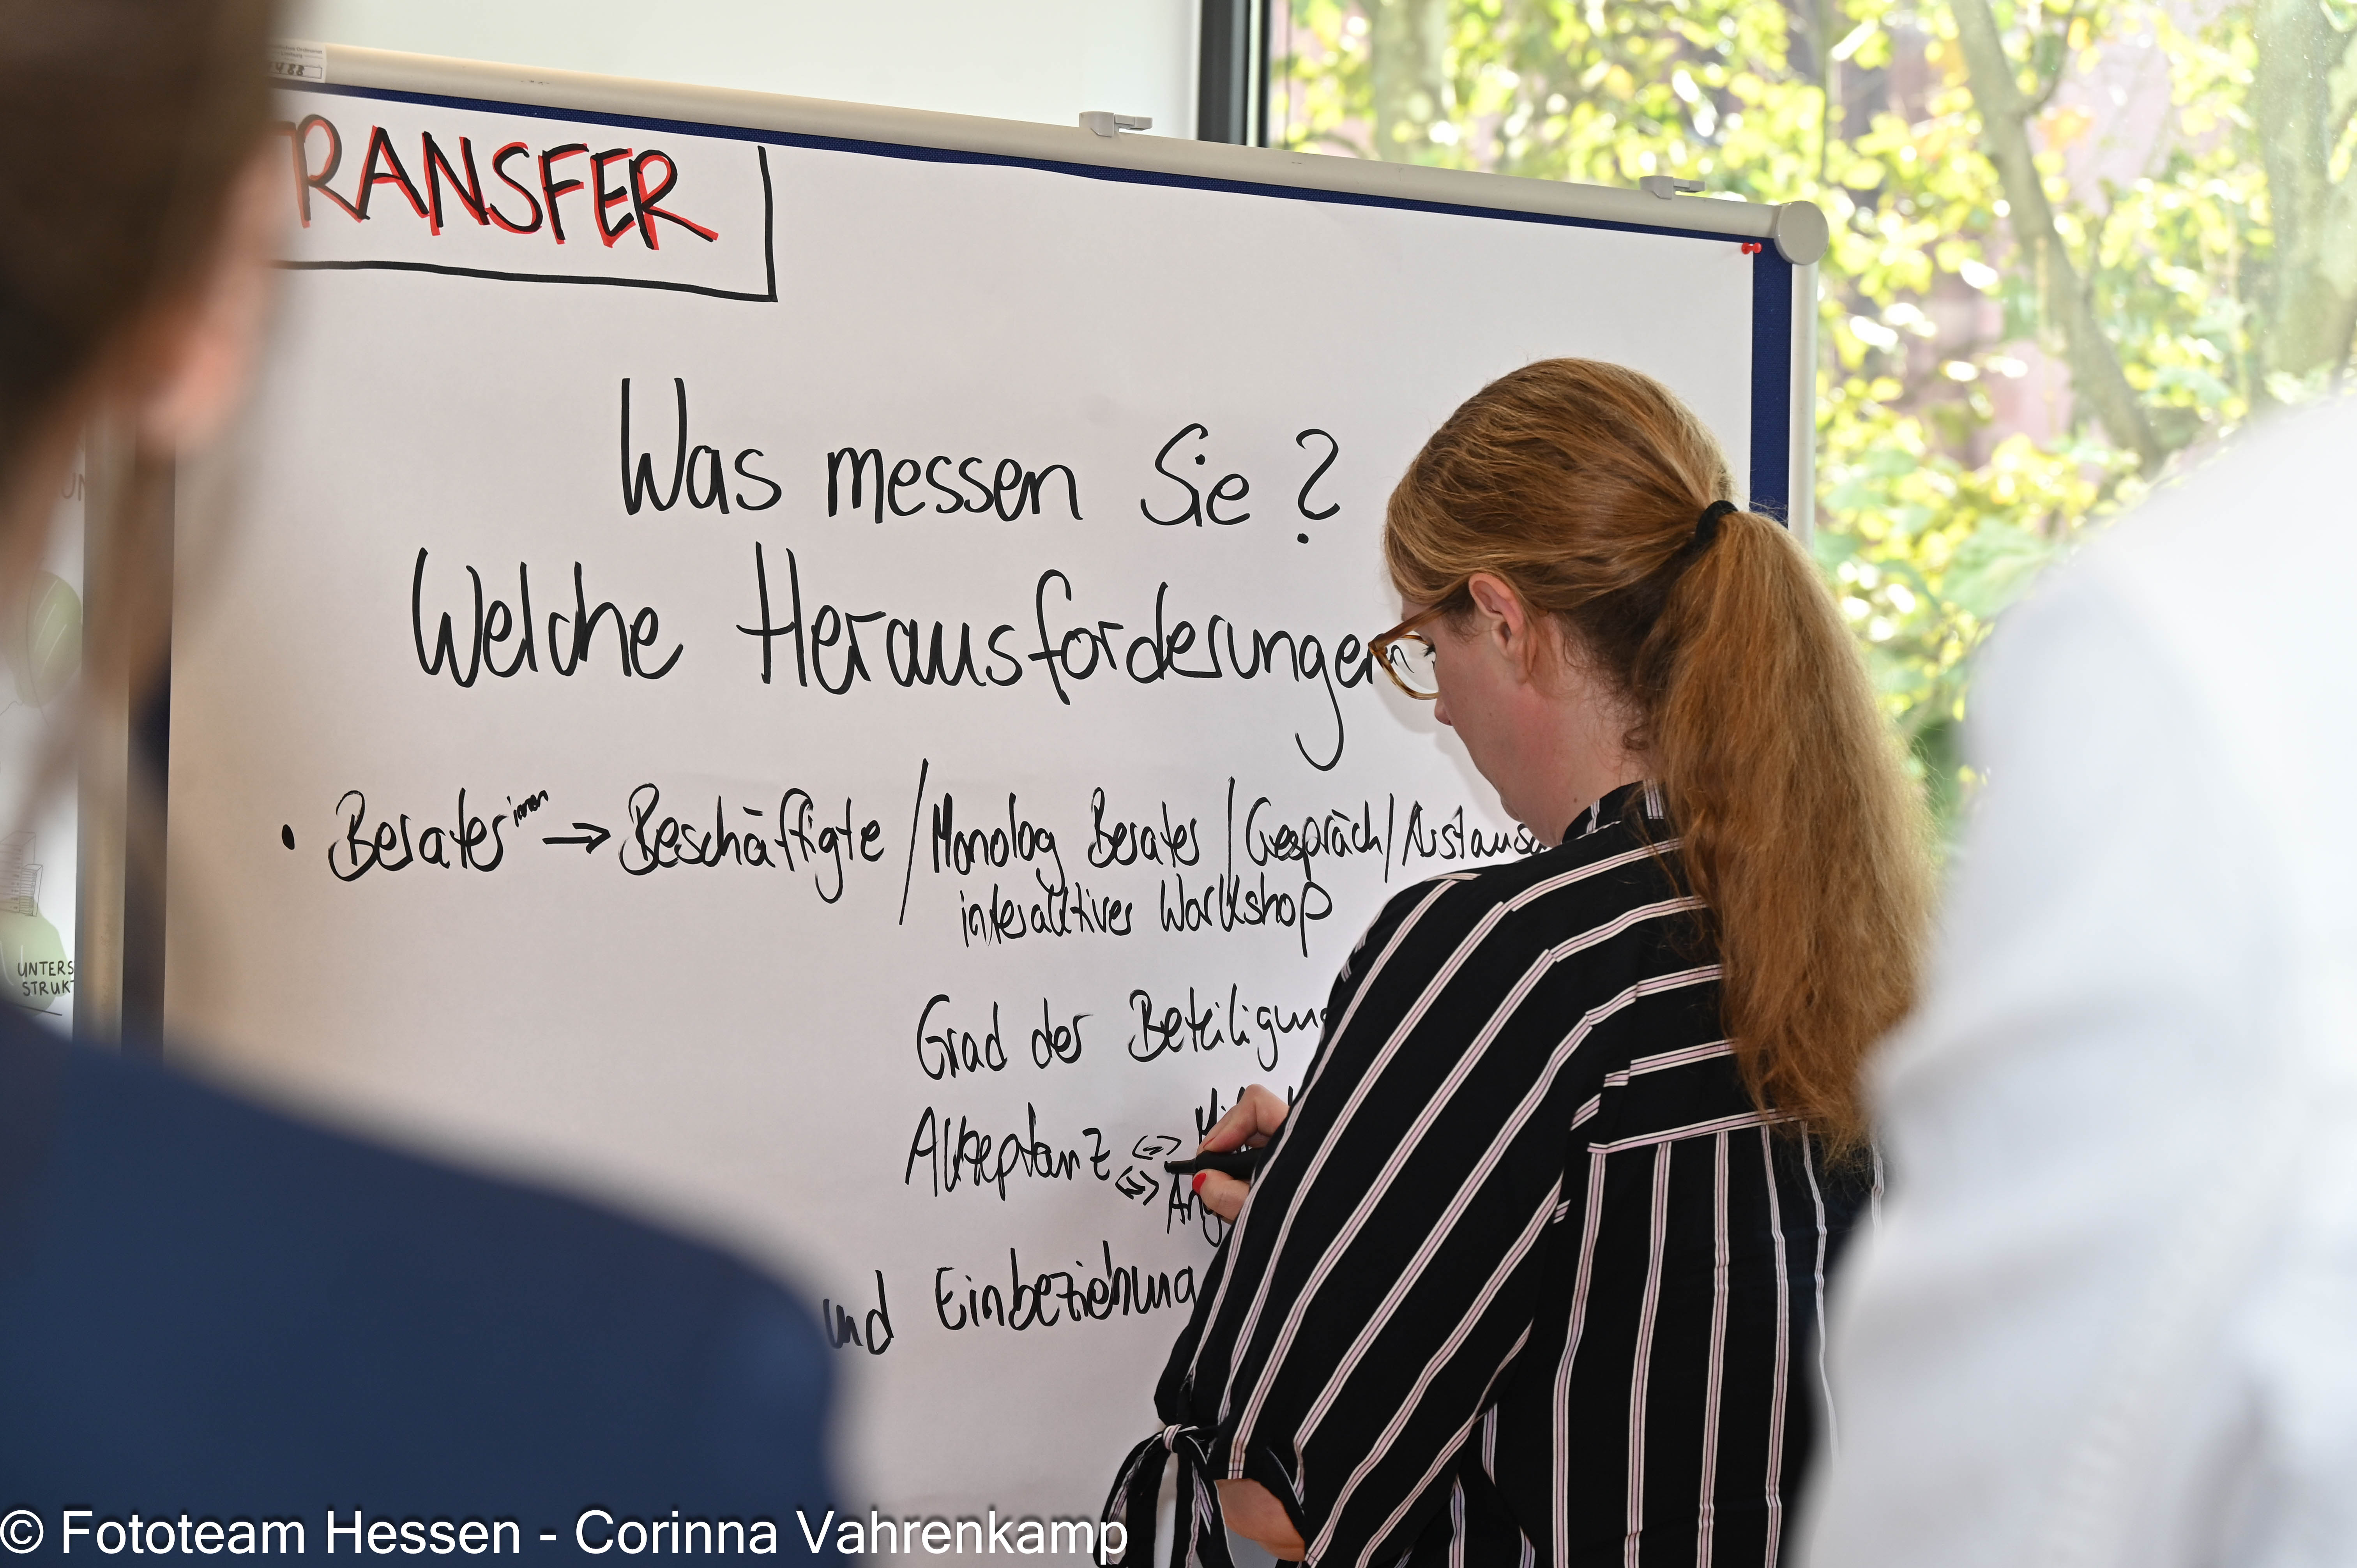 TRANSFER
Was messen Sie?
Welche Herausforderungen
• Berater innen → Beschäftigte / Monolog Berater / Gespräch / Austausc
interaktiver Workshop
Grad der Beteiligung
Akzeptanz
und Einbeziehung
UNTERS
STRUKT
© Fototeam Hessen - Corinna Vahrenkamp